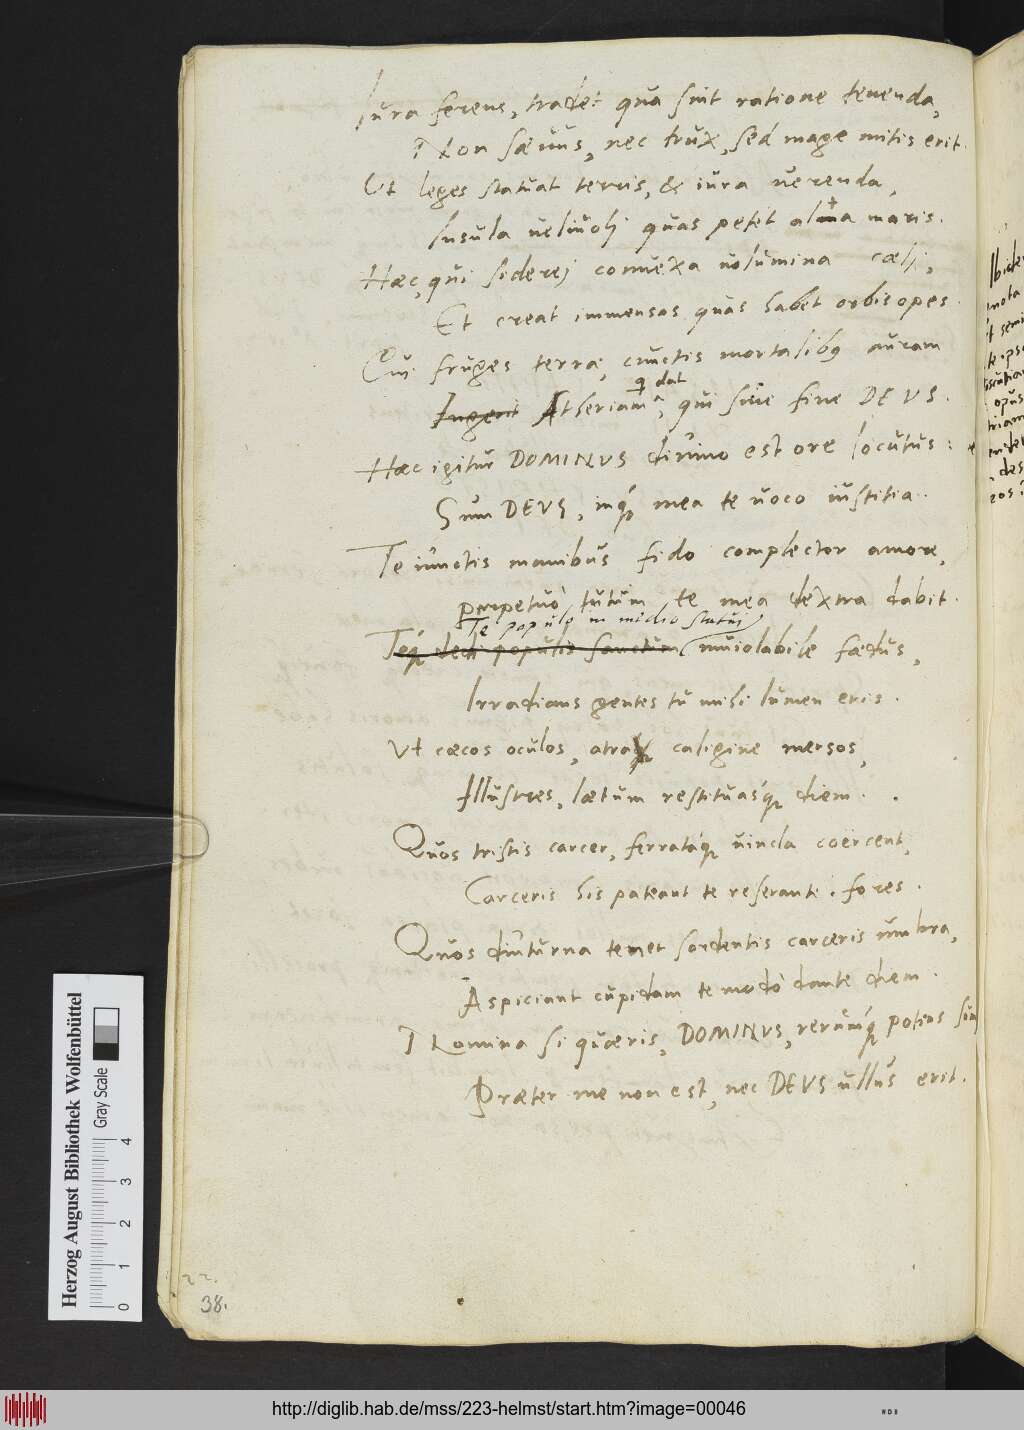 Iura ferens, tradet qua sint ratione tenenda,
Non sævus, nec trux, sed mage mitis erit.
Ut leges statuat terris, & iura verenda,
Insula velivoli quas petet alta maris.
Hæc, qui siderei convexa volumina cæli,
Et creat immensas quas habet orbis opes.
Qui fruges terræ, cunctis mortalibus auram
qui dat
Ingent Ætheriam, qui sine fine DEUS.
Hæc igitur DOMINUS divino est ore locutus:
Sum DEUS, inquit, mea te voco iustitia.
Te iunctis manibus fido complector amore,
perpetuò tutum te mea dextra dabit.
Te populo in medio statui
Teque dedi populis sanctum inviolabile fædus,
Irradians gentes tu mihi lumen eris.
Ut cæcos oculos, atra caligine mersos,
Illustres, lætum restituasque diem.
Quos tristis carcer, ferrataque vincla coërcent,
Carceris his pateant te reserante fores.
Quos diuturna tenet sordentis carceris umbra,
Aspiciant cupidam te modò dante diem.
Nomina si quæris, DOMINUS, rerumque potens sum
Præter me non est, nec DEUS ullus erit.
22.
38.
Herzog August Bibliothek Wolfenbüttel
Gray Scale
0 1 2 3 4
http://diglib.hab.de/mss/223-helmst/start.htm?image=00046